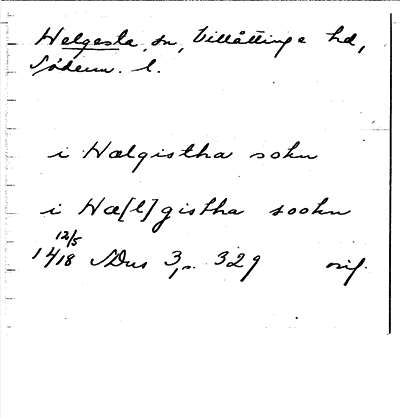 Helgesta sn, Villåttinge hd,
Söderm. l.
i Hælgistha sokn
i Hæ[l]gistha sookn
12/5
1418 SDns 3, s. 329 orig.